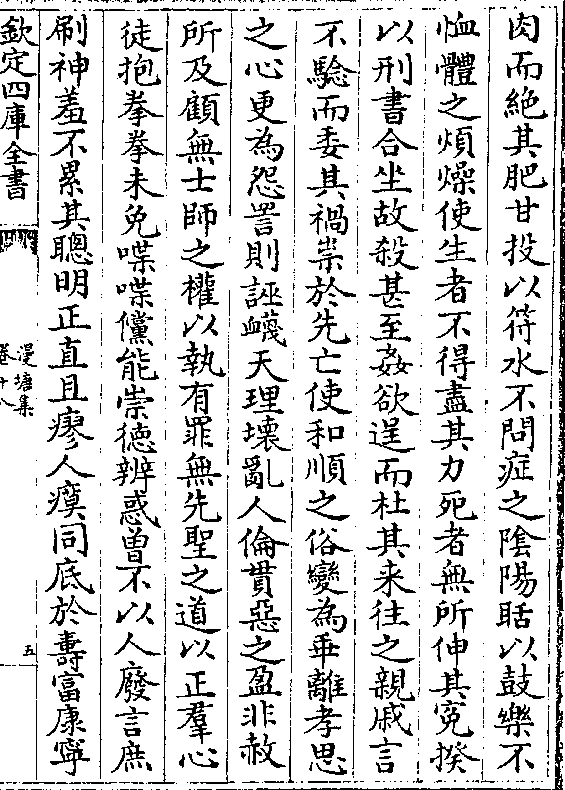 肉而絶其肥甘投以符水不問症之隂陽聒以鼓樂不
恤體之煩燥使生者不得盡其力死者無所伸其寃揆
以刑書合坐故殺甚至姦欲逞而杜其来往之親戚言
不驗而委其禍祟於先亡使和順之俗變為乖離孝思
之心更為怨詈則誣衊天理壊亂人倫貫惡之盈非赦
所及顧無士師之權以執有罪無先聖之道以正羣心
徒抱拳拳未免喋喋儻能崇徳辨惑曽不以人廢言庶
刷神羞不累其聰明正直且瘳人瘼同底於壽富康寧
欽定四庫全書
漫塘集
卷十八
五